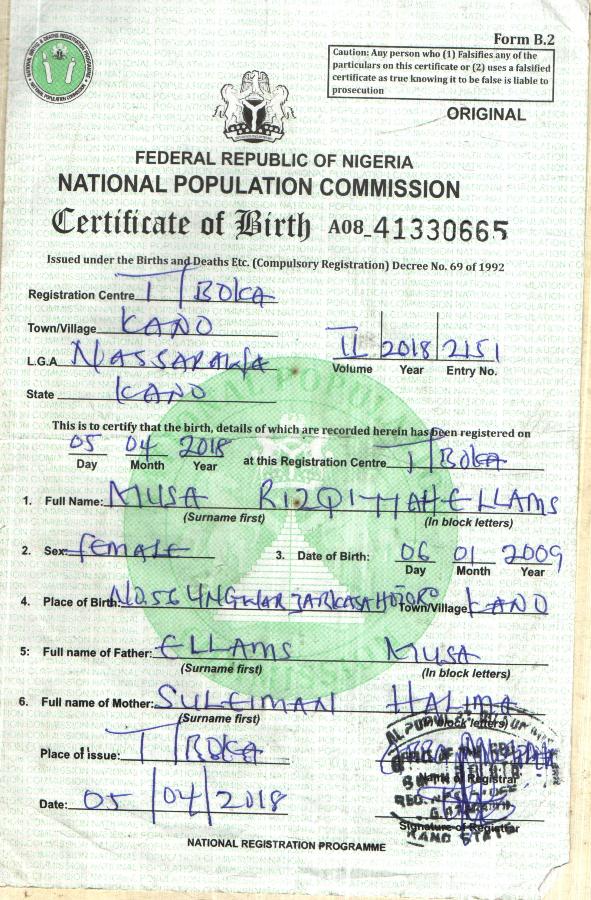 Form B.2
Caution: Any person who (1) Falsifies any of the
particulars on this certificate or (2) uses a falsified
certificate as true knowing it to be false is liable to
prosecution
ORIGINAL
FEDERAL REPUBLIC OF NIGERIA
NATIONAL POPULATION COMMISSION
Certificate of Birth A08_41330665
Issued under the Births and Deaths Etc. (Compulsory Registration) Decree No. 69 of 1992
Registration Centre T/BOKA
Town/Village KANO
L.G.A NASSARAWA
II 2018 2151
Volume Year Entry No.
State KANO
This is to certify that the birth, details of which are recorded herein has been registered on
05 04 2018 at this Registration Centre T/BOKA
Day Month Year
1. Full Name: MUSA RIZQIYAH ELLAMS
(Surname first) (In block letters)
2. Sex: FEMALE 3. Date of Birth: 06 01 2009
Day Month Year
4. Place of Birth: NO.56 UNGWAR JARKASA HOTORO Town/Village KANO
5: Full name of Father: ELLAMS MUSA
(Surname first) (In block letters)
6. Full name of Mother: SULEIMAN HALIMA
(Surname first) (In block letters)
Place of issue: T/BOKA
Name of Registrar
Date: 05/04/2018
Signature of Registrar
KANO STATE
NATIONAL REGISTRATION PROGRAMME